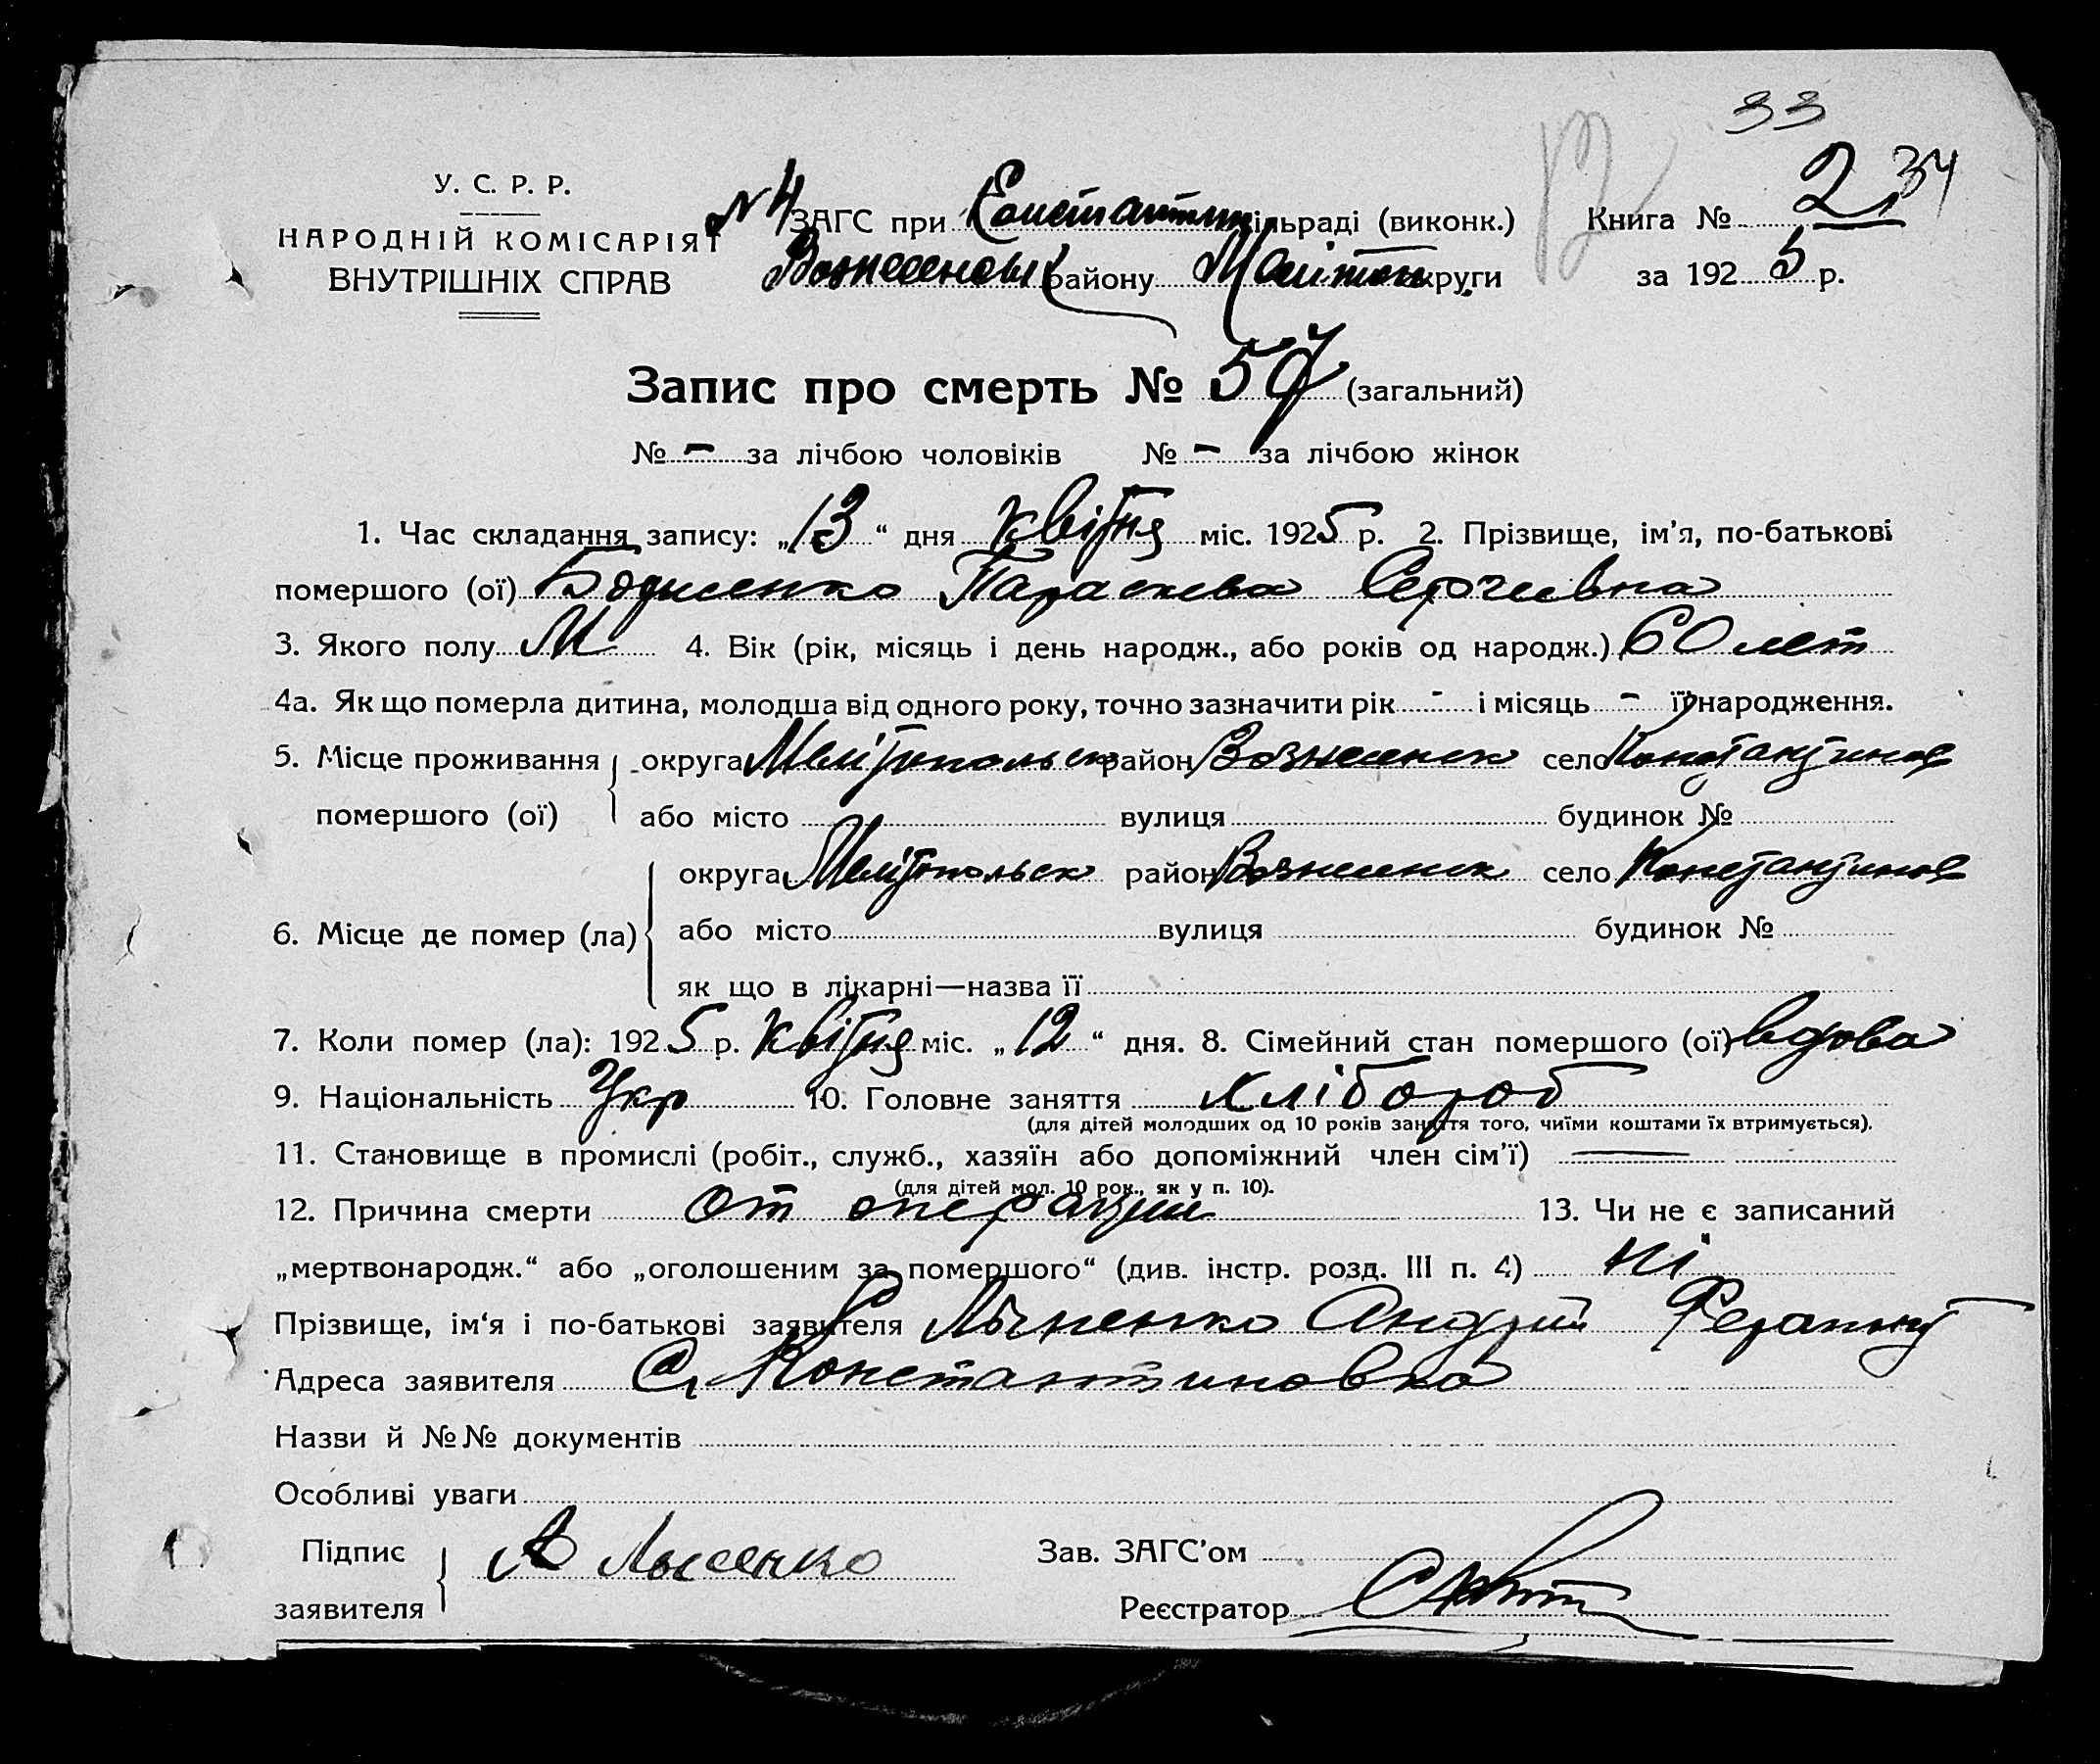 33
У. С. Р. Р.
НАРОДНІЙ КОМІСАРІЯТ
ВНУТРІШНІХ СПРАВ
№ 4 ЗАГС при Константин сільраді (виконк.)
Вознесенськ району Меліт округи
Книга № 2 34
за 192 5 р.
Запис про смерть № 59 (загальний)
№ - за лічбою чоловіків № - за лічбою жінок
1. Час складання запису: „13“ дня квітня міс. 1925 р. 2. Прізвище, ім’я, по-батькові
помершого (ої) Параскева Сергеевна
3. Якого полу 4. Вік (рік, місяць і день народж., або років од народж.) 60 лет
4а. Як що померла дитина, молодша від одного року, точно зазначити рік - і місяць - її народження.
5. Місце проживання округа Мелітопольск район Вознесенск село Константинов
помершого (ої) або місто вулиця будинок №
округа Мелітопольск район Вознесенск село Константинов
6. Місце де помер (ла) або місто вулиця будинок №
як що в лікарні—назва її
7. Коли помер (ла): 1925 р. квітня міс. „12“ дня. 8. Сімейний стан помершого (ої) вдова
9. Національність Укр 10. Головне заняття хлібороб
(для дітей молодших од 10 років заняття того, чиїми коштами їх втримується).
11. Становище в промислі (робіт., служб., хазяїн або допоміжний член сім’ї) —
(для дітей мол. 10 рок., як у п. 10).
12. Причина смерти от операции 13. Чи не є записаний
„мертвонародж.“ або „оголошеним за помершого“ (див. інстр. розд. III п. 4) ні
Прізвище, ім‘я і по-батькові заявителя Андрій
Адреса заявителя С. Константиновка
Назви й №№ документів
Особливі уваги
Підпис
заявителя А Лысенко
Зав. ЗАГС’ом
Реєстратор